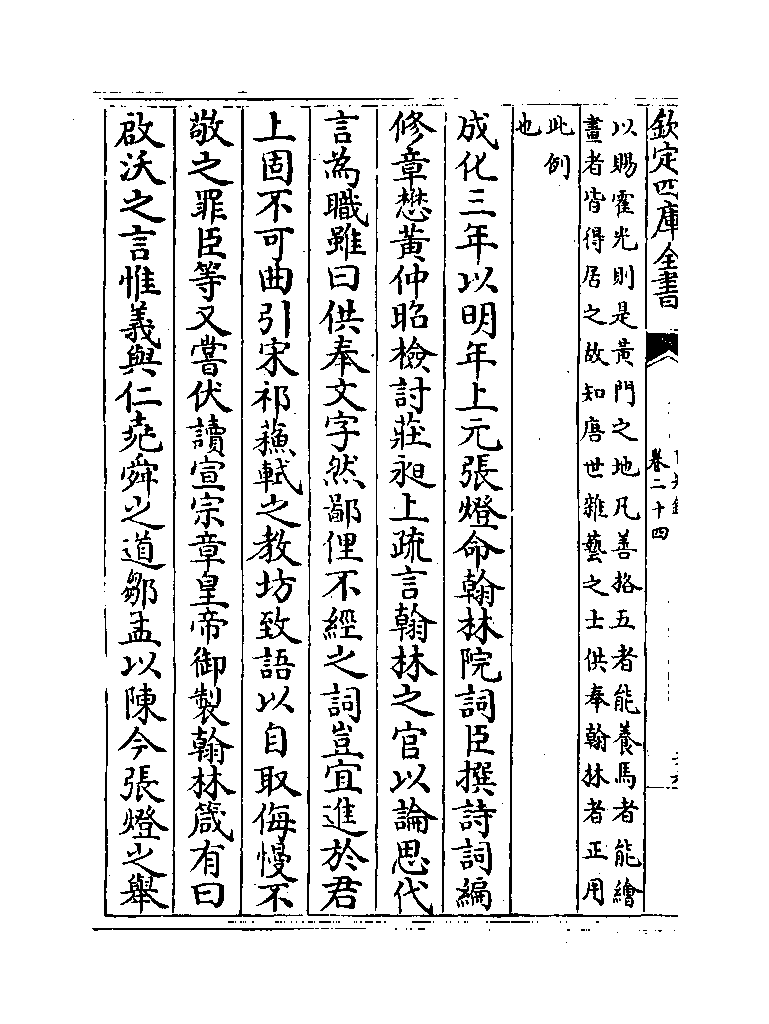 欽定四庫全書
卷二十四
以賜霍光則是黃門之地凡善格五者能養馬者能繪
畫者皆得居之故知唐世雜藝之士供奉翰林者正用
此例
也
成化三年以明年上元張燈命翰林院詞臣撰詩詞編
修章懋黃仲昭檢討莊昶上疏言翰林之官以論思代
言為職雖曰供奉文字然鄙俚不經之詞豈宜進於君
上固不可曲引宋祁蘓軾之教坊致語以自取侮慢不
敬之罪臣等又嘗伏讀宣宗章皇帝御製翰林箴有曰
啟沃之言惟義與仁堯舜之道鄒孟以陳今張燈之舉